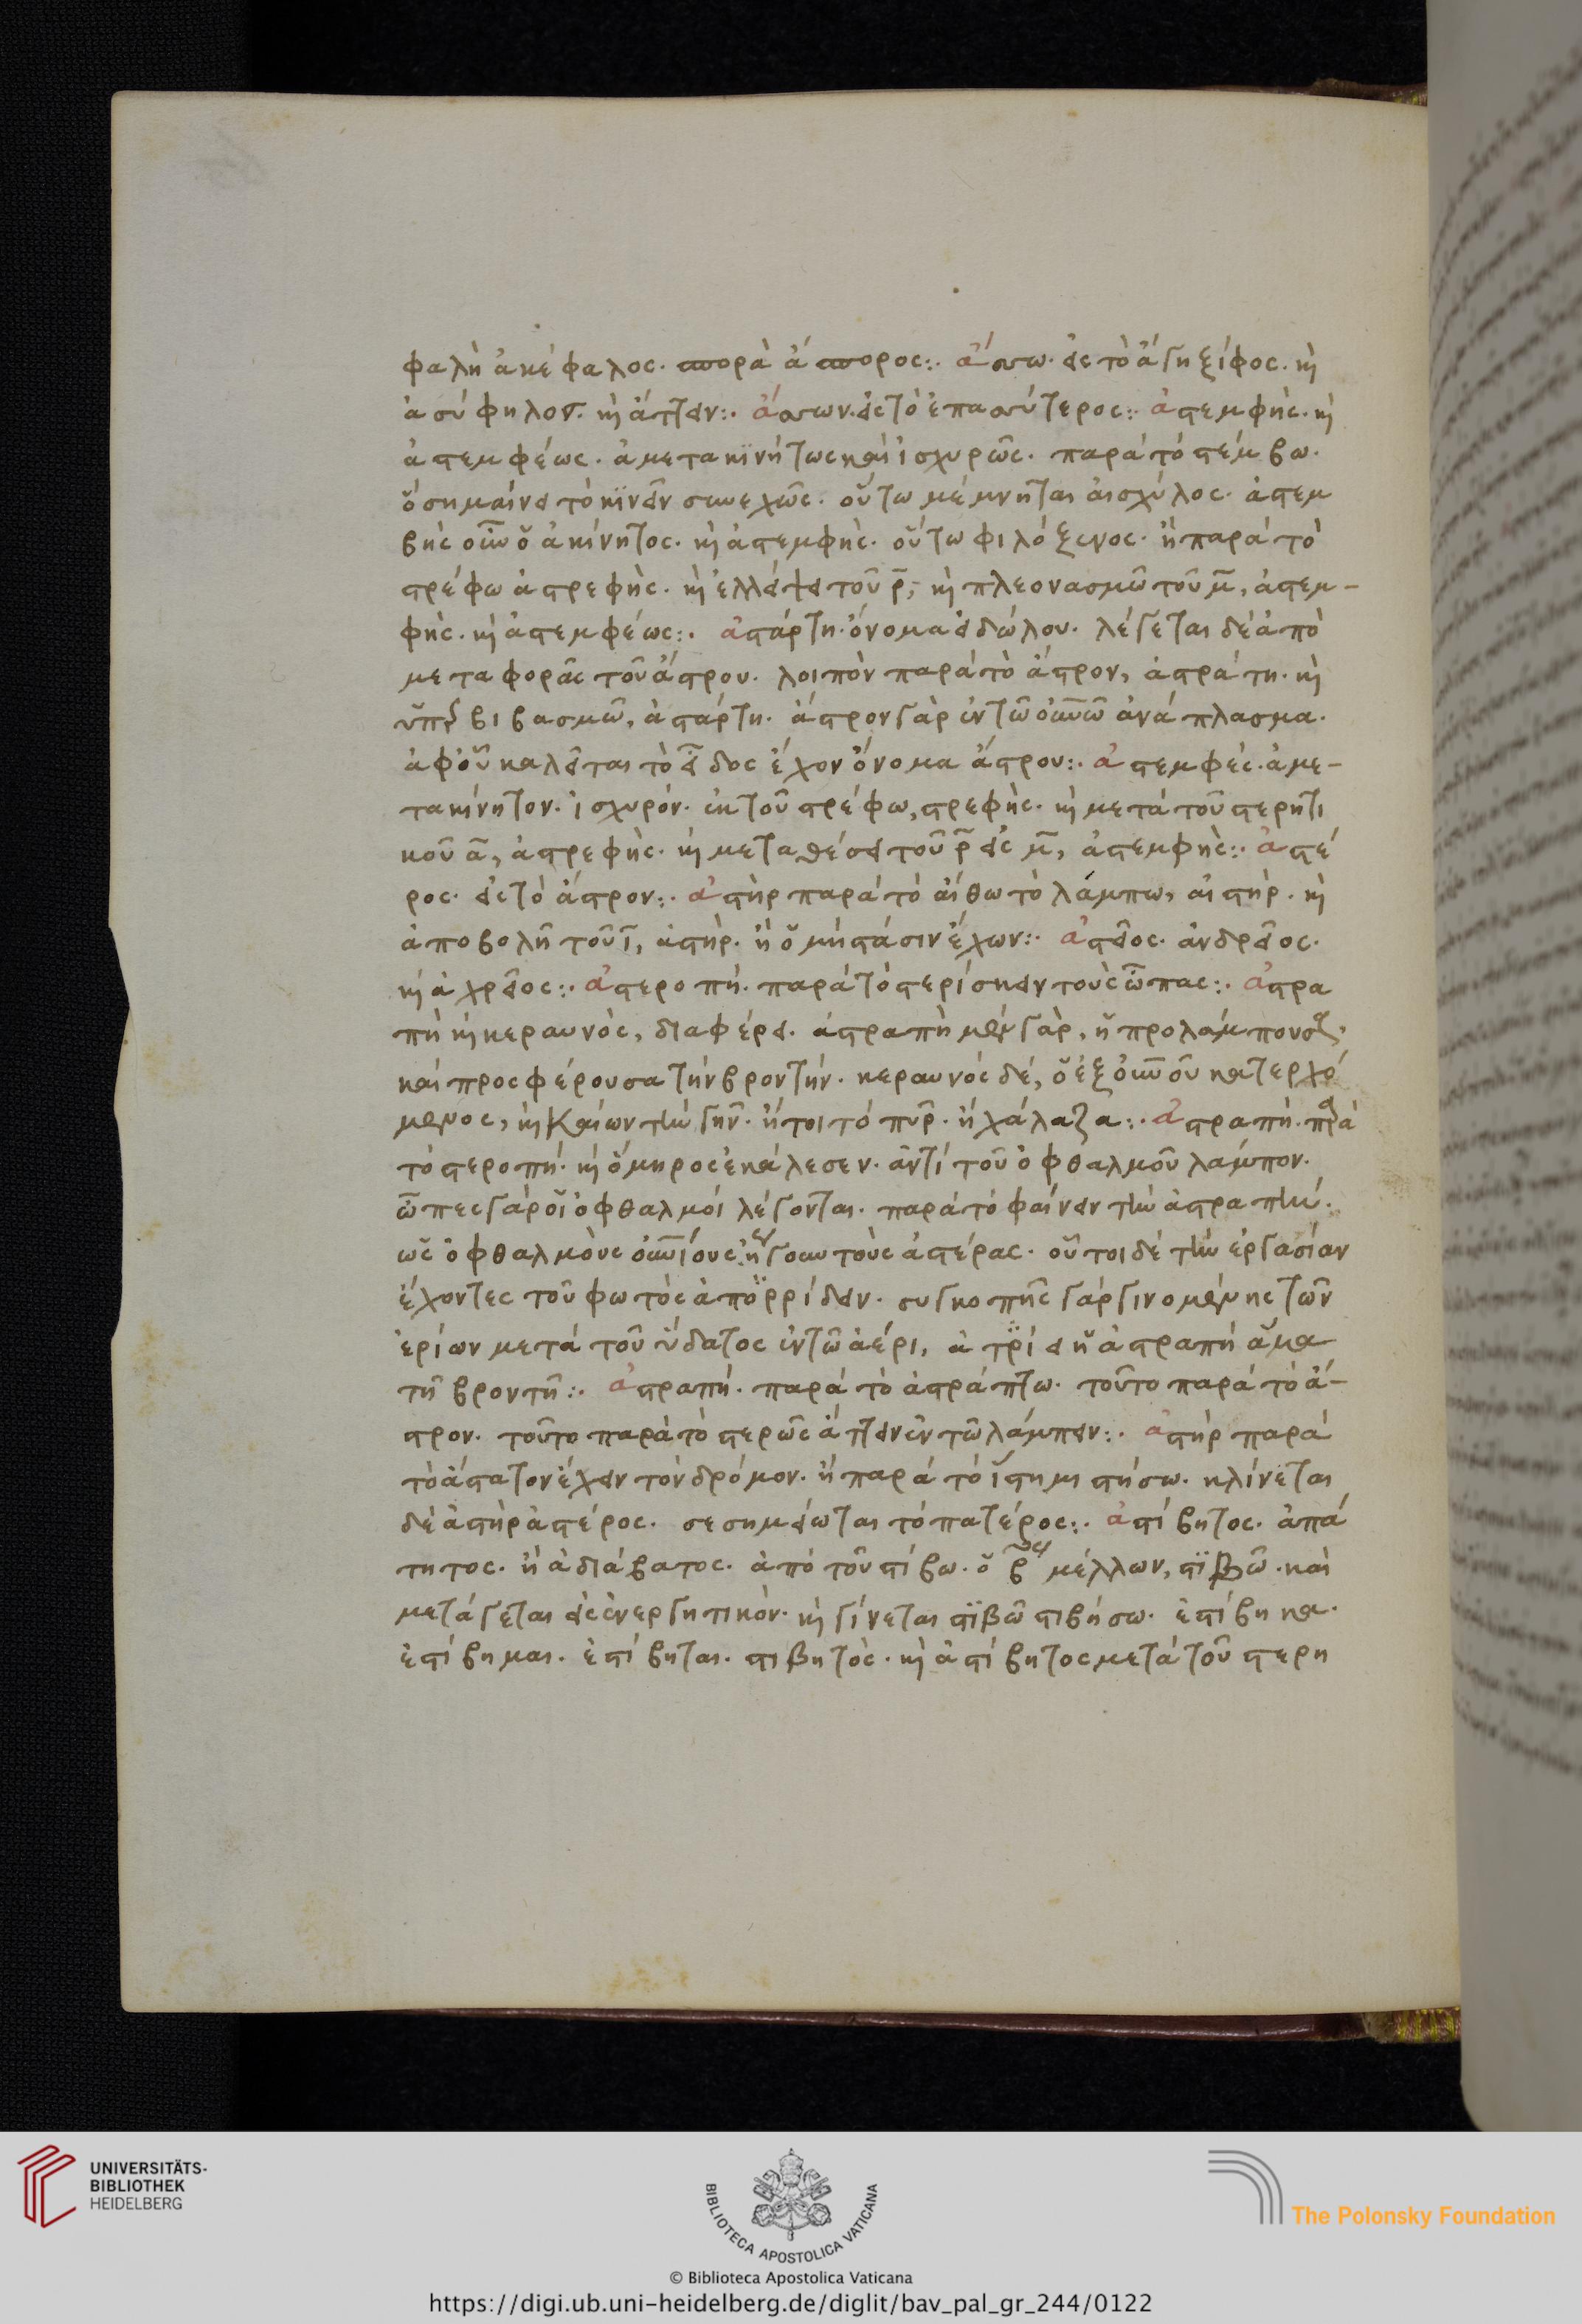 φαλὴ ἀκέφαλος. σπορὰ ἄσπορος:. ἄσσω. εἰς τὸ ἄγη ξίφος. κὶ
ἀσύφηλον. κὶ ἄττειν:. ἄσσων. εἰς τὸ ἐπασσύτερος:. ἀστεμφὴς. κὶ
ἀστεμφέως. ἀμετακϊνήτως καὶ ἰσχυρῶς. παρὰ τὸ στέμβω.
ὃ σημαίνει τὸ κϊνεῖν συνεχῶς. οὕτω μέμνηται αἰσχύλος. ἀστεμ
βὴς οὖν ὁ ἀκίνητος. κὶ ἀστεμφὴς. οὕτω φιλόξενος. ἢ παρὰ τὸ
στρέφω ἀστρεφὴς. κὶ ἐλλείψει τοῦ ρ̄, κὶ πλεονασμῶ τοῦ μ̄, ἀστεμ-
φὴς. κὶ ἀστεμφέως:. ἀστάρτη. ὄνομα εἰδώλου. λέγεται δὲ ἀπὸ
μεταφορᾶς τοῦ ἄστρου. λοιπὸν παρὰ τὸ ἄστρον, ἀστράτη. κὶ
ὑπερβιβασμῶ, ἀστάρτη. ἄστρον γὰρ ἐν τῶ οὐνῶ ἀνάπλασμα.
ἀφοὗ καλεῖται τὸ εἶδος ἔχον ὄνομα ἄστρου:. ἀστεμφές. ἀμε-
τακίνητον. ἰσχυρόν. ἐκ τοῦ στρέφω, στρεφὴς. κὶ μετὰ τοῦ στερητι
κοῦ ᾱ, ἀστρεφὴς. κὶ μεταθέσει τοῦ ρ̄ εἰς μ̄, ἀστεμφὴς:. ἀστέ
ρος. εἰς τὸ ἄστρον:. ἀστὴρ παρὰ τὸ αἴθω τὸ λάμπω, αἰστὴρ. κὶ
ἀποβολῆ τοῦ ῑ, ἀστὴρ. ἢ ὁ μὴ στάσιν ἔχων:. ἀστεῖος. ἀνδρεῖος.
κὶ ἀχρεῖος:. ἀστεροπή. παρὰ τὸ στερίσκειν τοὺς ὦπας:. ἀστρα
πὴ κὶ κεραυνὸς, διαφέρει. ἀστραπὴ μὲν γὰρ, ἡ προλάμπουσα,
καὶ προσφέρουσα τὴν βροντήν. κεραυνὸς δέ, ὁ ἐξ οὐνοῦ κατερχό
μενος, κὶ καίων τὴν γῆν. ἤτοι τὸ πῦρ. ἢ χάλαζα:. ἀστραπὴ. παρὰ
τὸ στεροπή. κὶ ὅμηρος ἐκάλεσεν. ἀντὶ τοῦ ὀφθαλμοῦ λάμπον.
ὦπες γὰρ οἱ ὀφθαλμοὶ λέγονται. παρὰ τὸ φαίνειν τὴν ἀστραπήν.
ὡς ὀφθαλμοὺς οὐνίους ἥγουν τοὺς ἀστέρας. οὗτοι δὲ τὴν ἐργασίαν
ἔχοντες τοῦ φωτὸς ἀπορρίδειν. συγκοπῆς γὰρ γινομένης τῶν
ἐρίων μετὰ τοῦ ὕδατος ἐν τῶ ἀέρι, ἀτρίει ἡ ἀστραπὴ ἅμα
τῆ βροντῆ:. ἀστραπή. παρὰ τὸ ἀστράπτω. τοῦτο παρὰ τὸ ἄ-
στρον. τοῦτο παρὰ τὸ στερῶς ἄττειν ἐν τῶ λάμπειν:. ἀστὴρ παρὰ
τὸ ἄστατον ἔχειν τὸν δρόμον. ἢ παρὰ τὸ ἵστημι στήσω. κλίνεται
δὲ ἀστὴρ ἀστέρος. σεσημείωται τὸ πατέρος:. ἀστίβητος. ἀπά
τητος. ἢ ἀδιάβατος. ἀπὸ τοῦ στίβω. ὁ β μέλλων, στϊβῶ. καὶ
μετάγεται εἰς ἐνεργητικὸν. κὶ γίνεται στϊβῶ στιβήσω. ἐστίβηκα.
ἐστίβημαι. ἐστίβηται. στιβητὸς. κὶ ἀστίβητος μετὰ τοῦ στερη
UNIVERSITÄTS-
BIBLIOTHEK
HEIDELBERG
BIBLIOTECA APOSTOLICA VATICANA
The Polonsky Foundation
© Biblioteca Apostolica Vaticana
https://digi.ub.uni-heidelberg.de/diglit/bav_pal_gr_244/0122